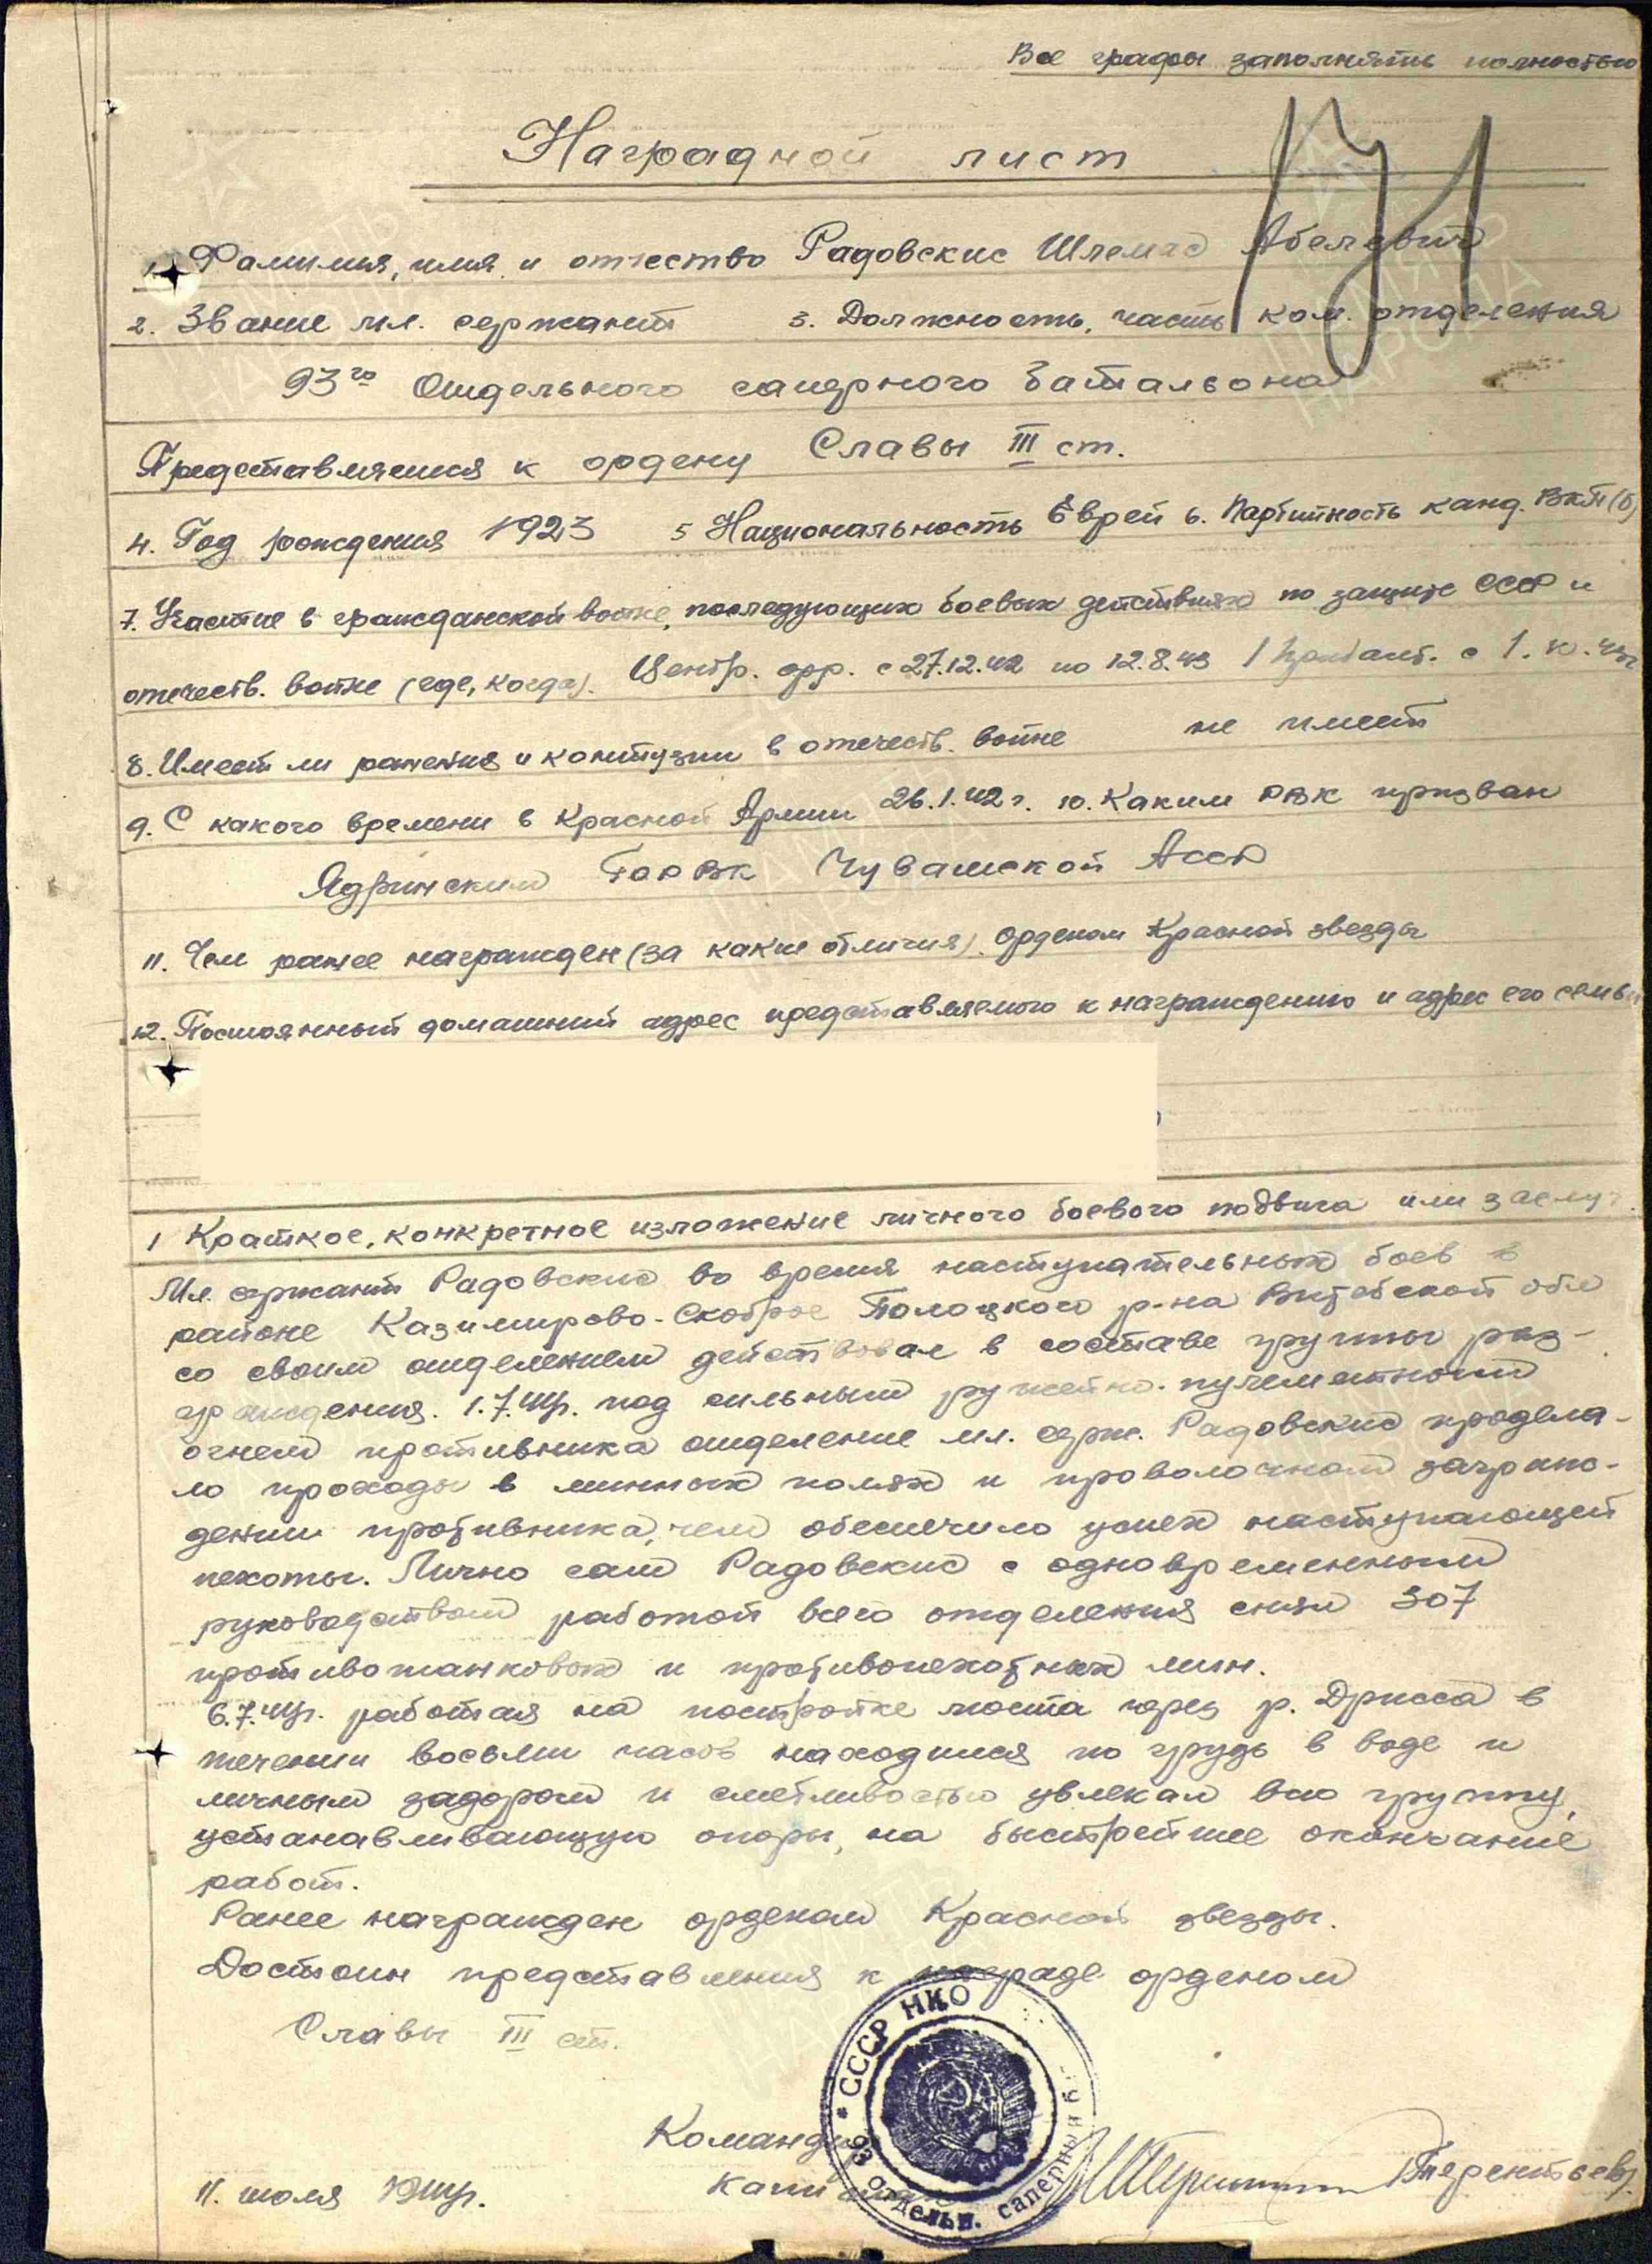 Все графы заполнять полностью
Наградной лист
1. Фамилия, имя и отчество Радовскис Шлемас Абелевич
2. Звание мл. сержант 3. Должность, часть ком. отделения
93го Отдельного саперного батальона
Представляется к ордену Славы III ст.
4. Год рождения 1923 5 Национальность Еврей 6. Партийность канд. ВКП(б)
7. Участие в гражданской войне, последующих боевых действиях по защите СССР и
отечеств. войне (где, когда). Центр. фр. с 27.12.42 по 12.8.43 1 Прибалт. с
8. Имеет ли ранения и контузии в отечеств. войне не имеет
9. С какого времени в Красной Армии 26.1.42 г. 10. Каким РВК призван
Ядринским ГорРВК Чувашской АССР
11. Чем ранее награжден (за какие отличия). Орденом Красной звезды
12. Постоянный домашний адрес представляемого к награждению и адрес его семьи
1 Краткое, конкретное изложение личного боевого подвига или заслуг.
Мл. сержант Радовскис во время наступательных боев в
районе Казимирово-Скоброе Полоцкого р-на Витебской обл
со своим отделением действовал в составе группы раз-
граждения. 1.7.44г. под сильным ружейно-пулеметным
огнем противника отделение мл. серж. Радовскис продела-
ло проходы в минных полях и проволочном заграж-
дении противника, чем обеспечило успех наступающей
пехоты. Лично сам Радовскис с одновременным
руководством работой всего отделения снял 307
противотанковых и противопехотных мин.
6.7.44г. работая на постройке моста через р. Дрисса в
течении восьми часов находился по грудь в воде и
личным задором и сметливостью увлекал всю группу,
устанавливающую опоры, на быстрейшее окончание
работ.
Ранее награжден орденом Красной звезды.
Достоин представления к награде орденом
Славы III ст.
СССР НКО
93 отдельн. саперный
Командир
капитан Терентьев
11. июля 1944г.